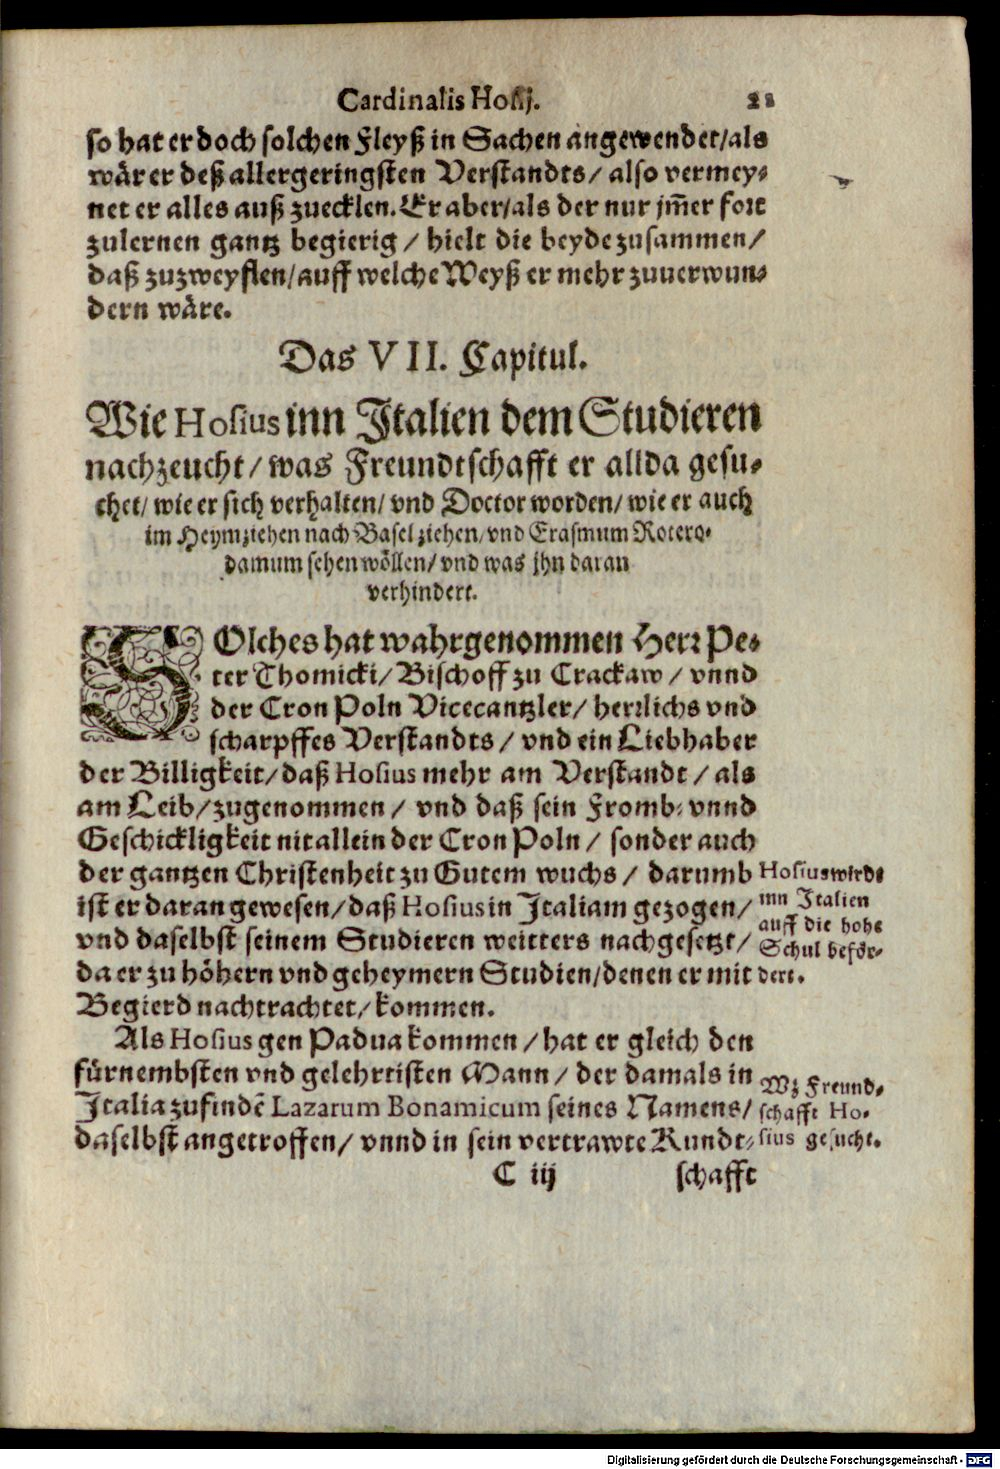 Cardinalis Hosij. 21
so hat er doch solchen Fleyß in Sachen angewendet/als
wär er deß allergeringsten Verstandts/ also vermey⸗
net er alles auß zuecklen. Er aber/als der nur jm̃er fort
zulernen gantz begierig / hielt die beyde zusammen/
daß zuzweyflen/auff welche Weyß er mehr zuuerwun⸗
dern wäre.
Das VII. Capitul.
Wie Hosius inn Jtalien dem Studieren
nachzeucht/ was Freundtschafft er allda gesu⸗
chet/ wie er sich verhalten/ vnd Doctor worden/ wie er auch
im Heymziehen nach Basel ziehen/ vnd Erasmum Rotero⸗
damum sehen wöllen/ vnd was jhn daran
verhindert.
SOlches hat wahrgenommen Herr Pe⸗
ter Thomicki/ Bischoff zu Crackaw / vnnd
der Cron Poln Vicecantzler/ herrlichs vnd
scharpffes Verstandts / vnd ein Liebhaber
der Billigkeit/daß Hosius mehr am Verstandt / als
am Leib/zugenommen / vnd daß sein Fromb⸗ vnnd
Geschickligkeit nit allein der Cron Poln / sonder auch
der gantzen Christenheit zu Gutem wuchs / darumb
ist er daran gewesen/daß Hosius in Jtaliam gezogen/
vnd daselbst seinem Studieren weitters nachgesetzt/
da er zu höhern vnd geheymern Studien/denen er mit
Begierd nachtrachtet/ kommen.
Hosius wirdt
inn Jtalien
auff die hohe
Schul beför⸗
dert.
Als Hosius gen Padua kommen / hat er gleich den
fürnembsten vnd gelehrtisten Mann / der damals in
Jtalia zufindẽ Lazarum Bonamicum seines Namens/
daselbst angetroffen/ vnnd in sein vertrawte Kundt⸗
Wz Freund⸗
schafft Ho⸗
sius gesucht.
C iij schafft
Digitalisierung gefördert durch die Deutsche Forschungsgemeinschaft - DFG